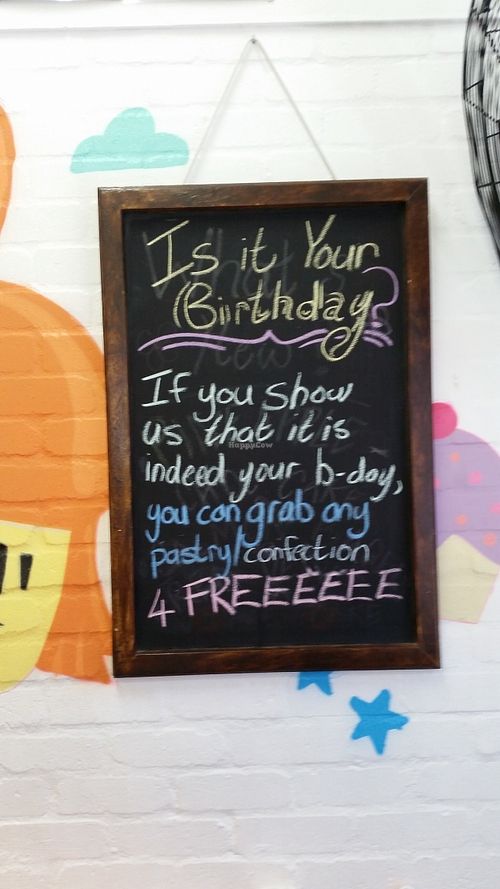 Is it Your
Birthday?
If you show
us that it is
HappyCow
indeed your b-day,
you can grab any
pastry/confection
4 FREEEEEE